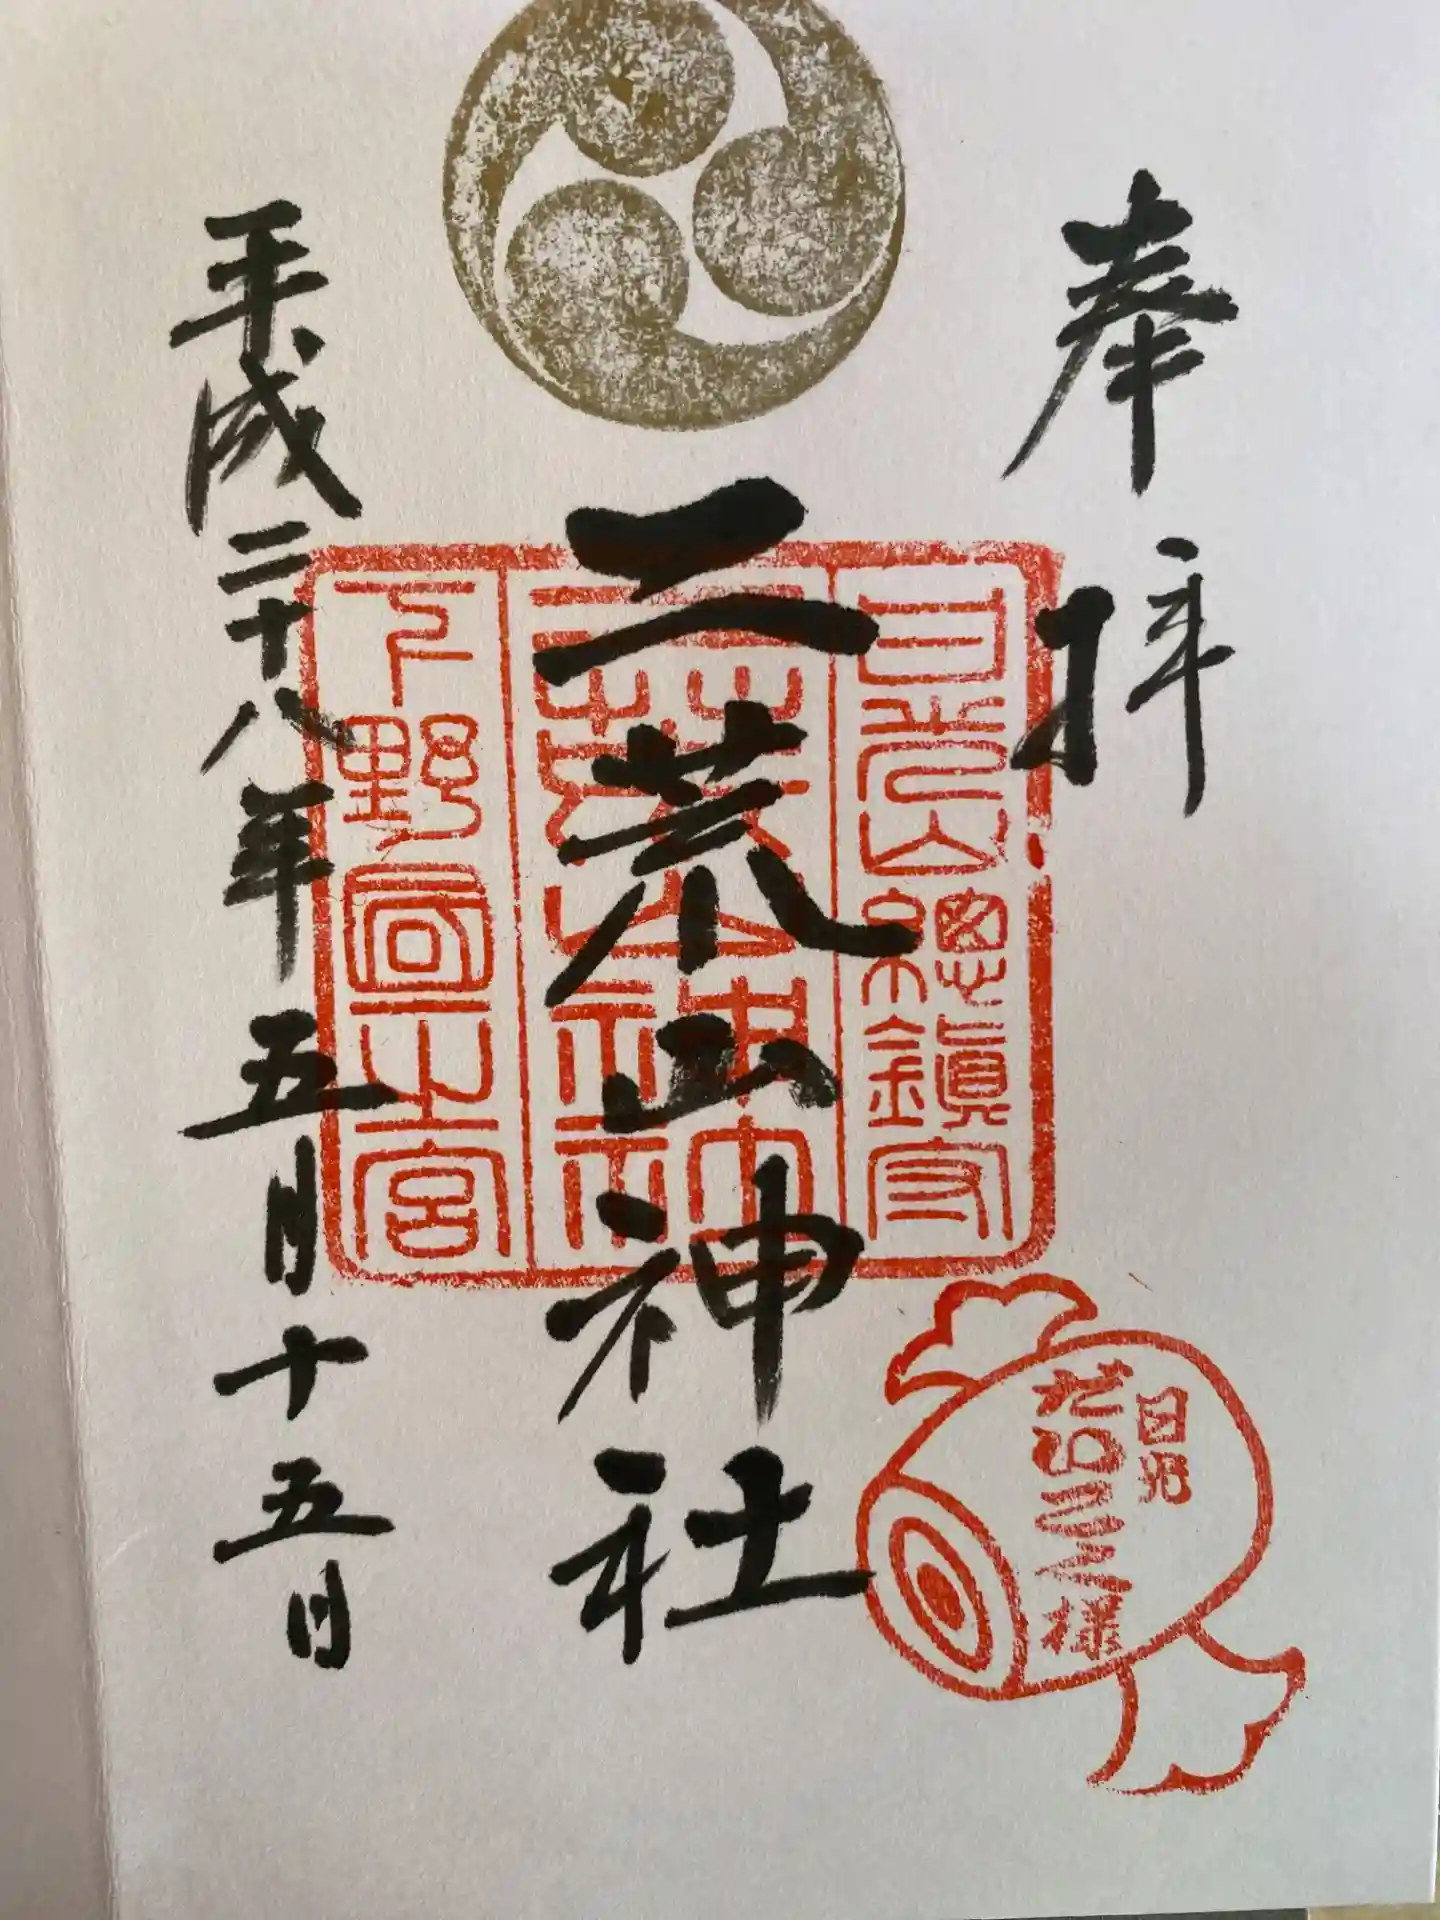 奉拝
日光山總鎮守
二荒山神社
二荒山神社印
下野國一宮
平成二十八年五月十五日
日光
だいこく様